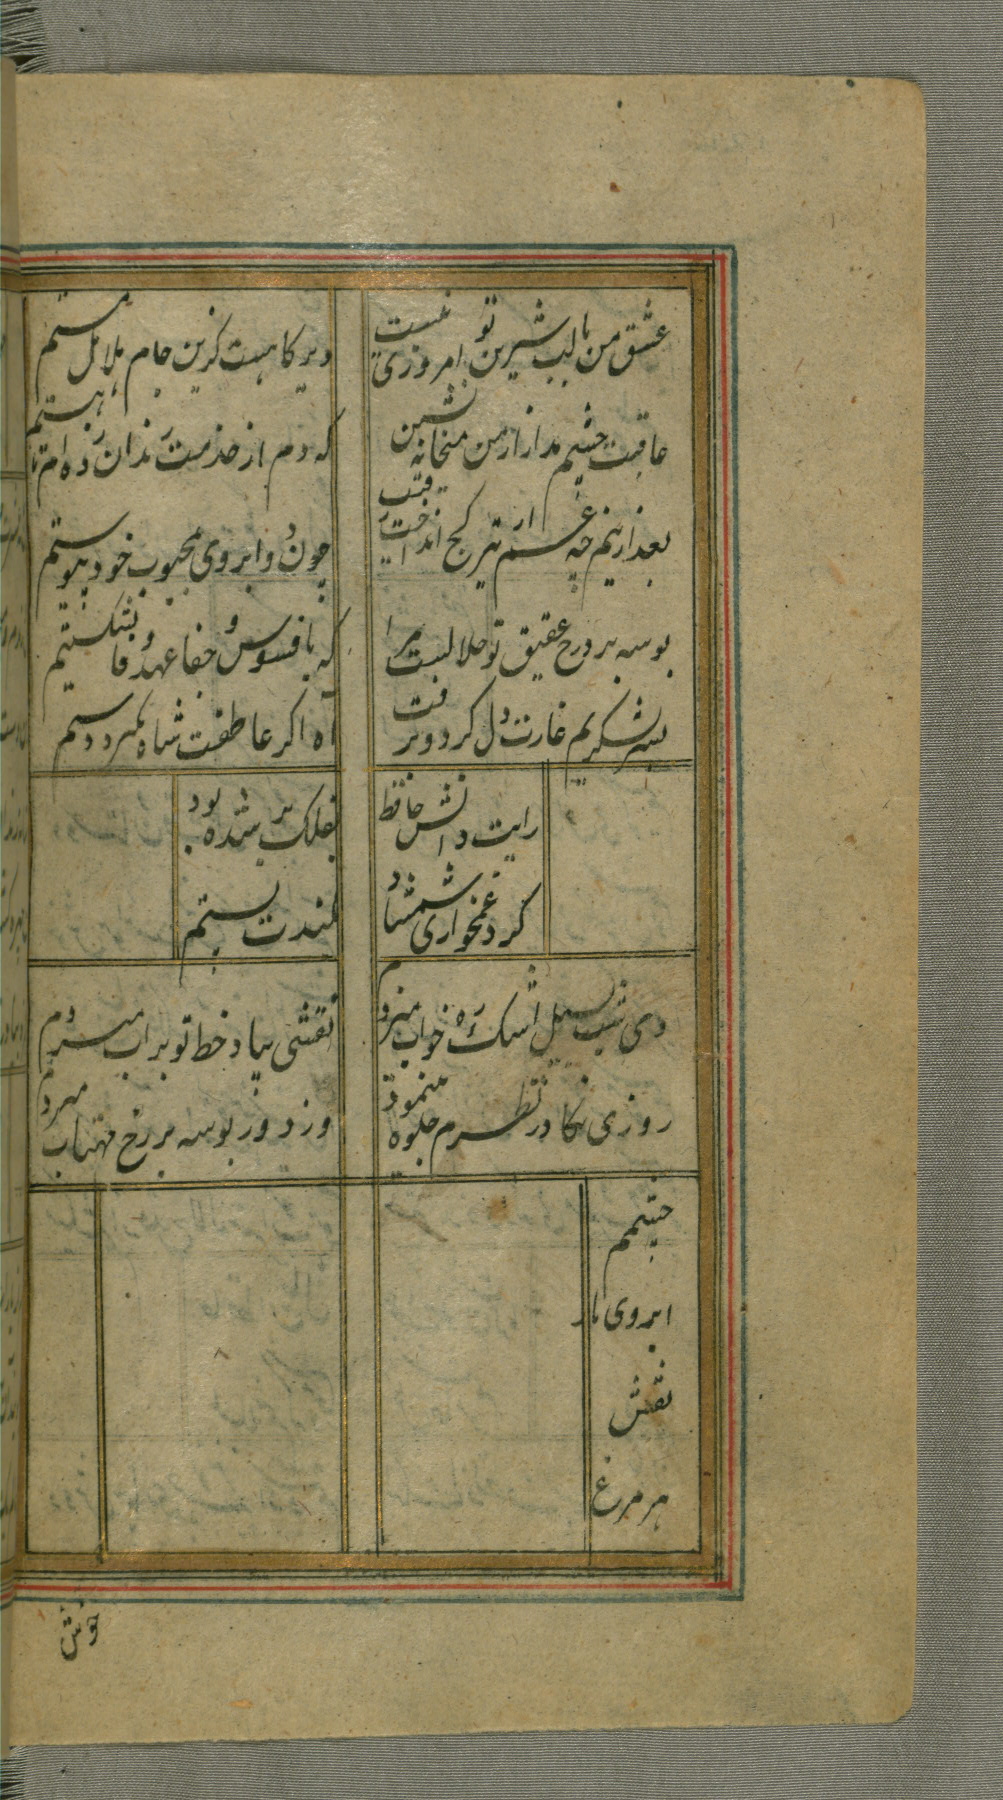 عشق من با لب شیرین تو امروزی نیست
دیر کاهست کزین جام هلاهل مستم
عاقبت چشم مدار از من میخانه نشین
که دم از خدمت رندان زده ام تا هستم
بعد ازینم چه غم از تیر کج انداخت رقیب
چون و ابروی محبوب خود پیوستم
بوسه بر درج عقیق تو حلالست مرا
که بافسوس و جفا عهد و وفا نشکستم
لشکریم غارت دل کرد و برفت
آه اکر عاطفت شاه نکیرد دستم
رایت دانش حافظ
بفلک بر شده بود
کرد غمخواری شمشاد
بلندت پستم
دی شب سیل اشک ره خواب میزدم
نقشی بیاد خط تو بر اب میزدم
روزی نکا در نظرم جلوه مینمود
وز دور بوسه بر رخ مهتاب میزدم
چشمم
ابروی یار
نقش
هر مرغ
خوش